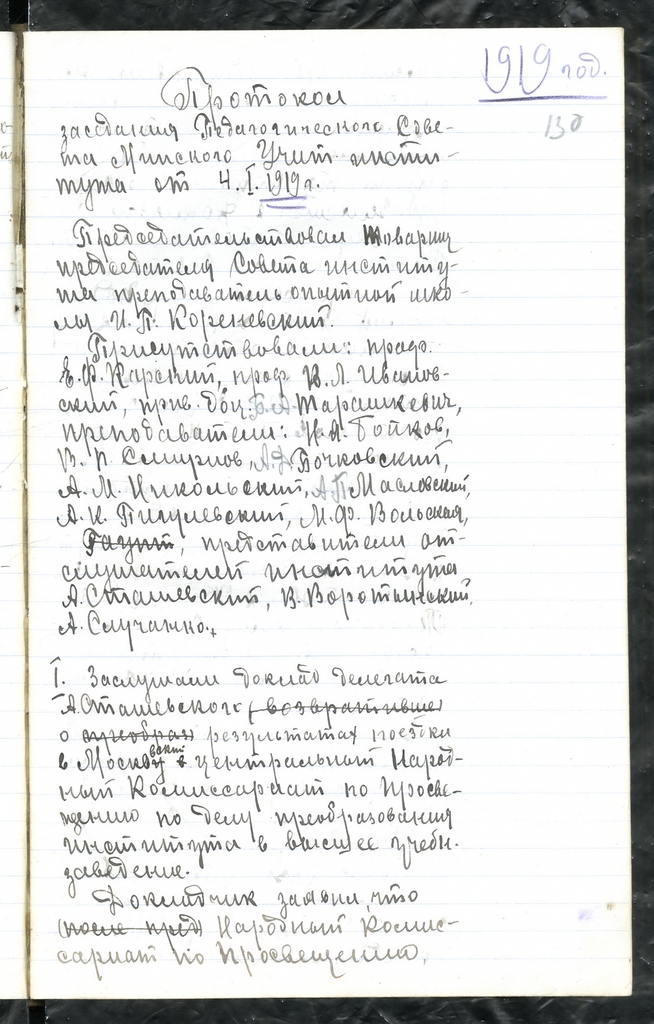 1919 год.
130
Протокол
заседания Педагогического Сове-
та Минского Учит. инсти-
тута от 4.I.1919 г.
Председательствовал товарищ
председателя Совета институ-
та преподаватель опытной шко-
лы И. П. Кореневский.
Присутствовали: проф.
Е. Ф. Карский, проф. В. Л. Иванов-
ский, прив. доц. Б. А. Тарашкевич,
преподаватели: Н. А. Бойков,
В. Р. Смирнов, А. Д. Бочковский,
А. М. Никольский, А П Масловский,
А. К. Пигулевский, М. Ф. Вольская,
представители от-
слушателей института
А. Сташевский, В. Воротынский,
А. Случанко.
I. Заслушали доклад делегата
А. Сташевского (возвративше)
о (преобраз) результатах поездки
в Московский центральный Народ-
ный Комиссариат по Просве-
щению по делу преобразования
института в высшее учебн.
заведение.
Докладчик заявил, что
(после пред) Народный Комис-
сариат по Просвещению,